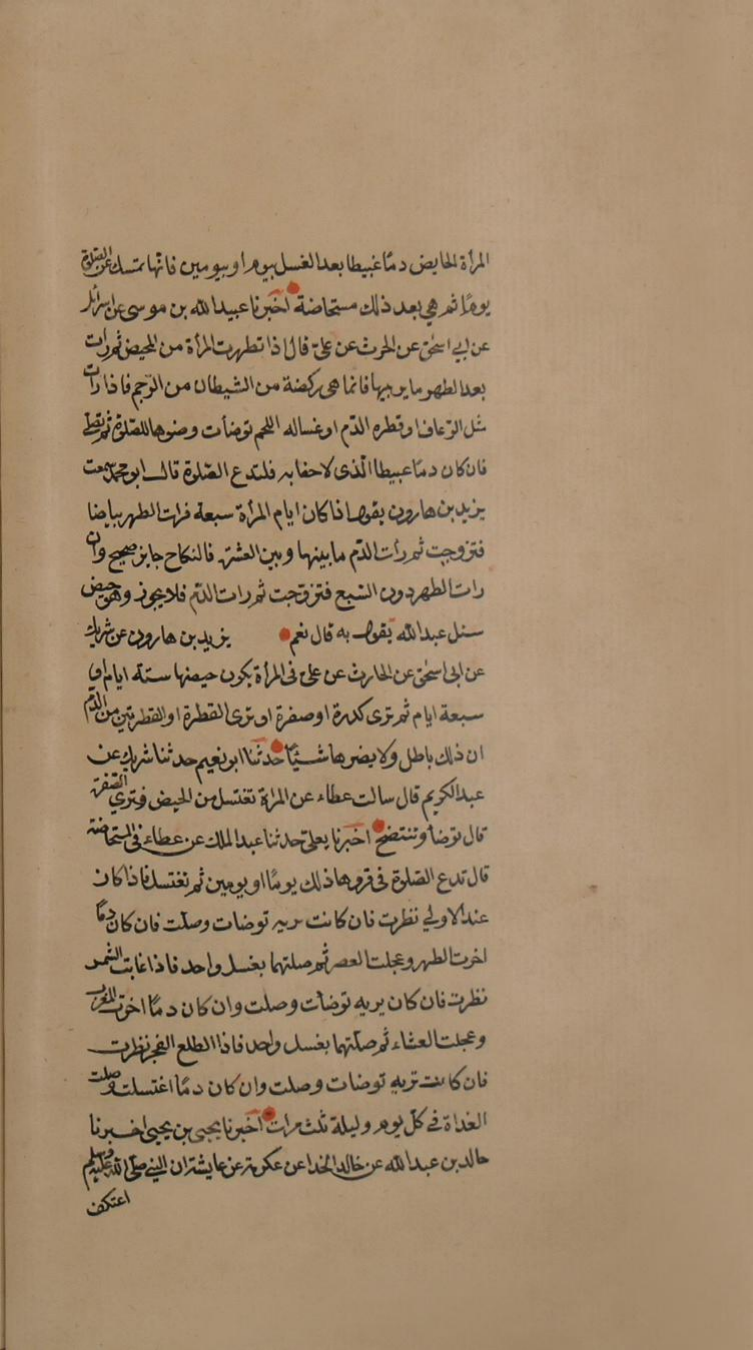 المرأة الحايض دمًا غبيطا بعد الغسل بيوم او بيومين فانها تمسك عن الصلوة
يومًا ثم هي بعد ذلك مستحاضة اخبرنا عبيد الله بن موسى عن اسرائل
عن ابي اسحق عن الحرث عن علي قال اذا تطهرت المرأة من المحيض ثم رات
بعد الطهر ما يريبها فانما هى ركضة من الشيطان من الرحم فاذا رات
مثل الرعاف او قطره الدم او غساله اللحم توضأت وضوها للصلوة ثم تصلى
فان كان دمًا عبيطا الذى لا خفا به فلتدع الصلوة قال ابو محمد سمعت
يزيد بن هارون يقول اذا كان ايام المرأة سبعة فرات الطهر بياضا
فتزوجت ثم رأت الدم ما بينها وبين العشر فالنكاح جايز صحيح وان
رات الطهر دون السبع فتزوجت ثم رات الدم فلا يجوز وهو حيض
سئل عبد الله بقول به قال نعم يزيد بن هارون عن شريك
عن ابى اسحق عن الحارث عن على فى المرأة يكون حيضها ستة ايام او
سبعة ايام ثم ترى كدرة او صفرة او ترى القطرة او القطرتين من الدم
ان ذلك باطل ولا يضرها شيئًا حدثنا ابو نعيم حدثنا شريك عن
عبد الكريم قال سالت عطاء عن المراة تغتسل من الحيض فترى الصفرة
قال توضأ وتنتضح اخبرنا يعلى حدثنا عبد الملك عن عطاء فى المستحاضة
قال تدع الصلوة فى قروها ذلك يومًا او يومين ثم تغتسل فاذا كان
عند الاولي نظرت فان كانت تريه توضات وصلت فان كان دمًا
اخرت الظهر وعجلت العصر ثم صلتهما بغسل واحد فاذا غابت الشمس
نظرت فان كان يريه توضأت وصلت وان كان دمًا اخرت المغرب
وعجلت العشاء ثم صلتهما بغسل واحد فاذا الطلع الفجر نظرت
فان كانت تريه توضات وصلت وان كان دمًا اغتسلت وصلت
الغداة في كل يوم وليلة ثلث مرات اخبرنا يحيى بن يحيى اخبرنا
خالد بن عبد الله عن خالد الحذا عن عكرمة عن عايشة ان النبي صلى الله عليه وسلم
اعتكف